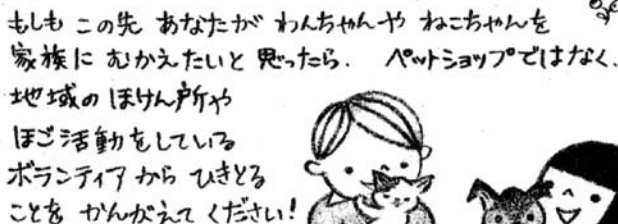 もしも この先 あなたが わんちゃんや ねこちゃんを
家族に むかえたいと 思ったら、 ペットショップではなく、
地域の ほけん所や
ほご活動をしている
ボランティアから ひきとる
ことを かんがえて ください!